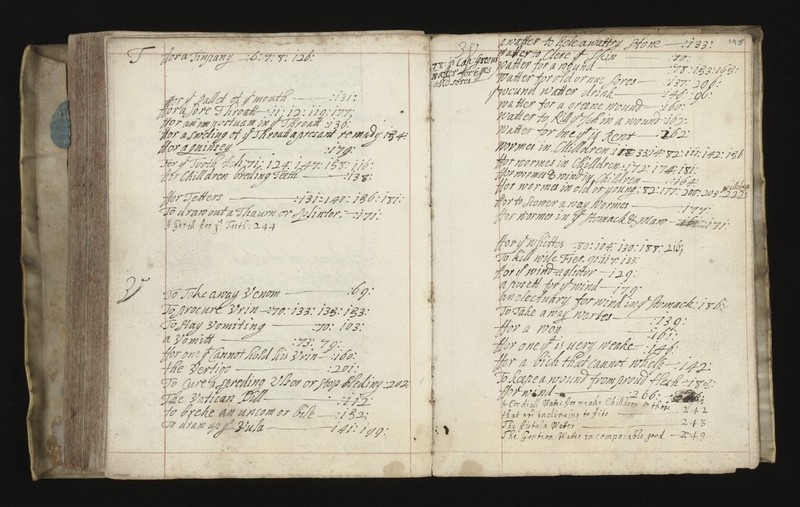 T
ffor a Tinpany :6:7:8:126:
ffor yͤ Pallet of yͤ mouth :131:
ffor a sore Throat :11:12:119:177:
ffor an impostuam in yͤ Throat :136:
ffor a swelling of yͤ Throat a present remedy 134:
ffor a quinsey :179:
ffor yͤ Tooth Ach:71:124:147:158:116:
ffor Children breding Teeth :138:
ffor Tetters :131:148:156:181:
To draw out a Thawrn or Splinter :171:
A Seral for yͤ 244
V
To Take away Venom :69:
To procure Vrin :70:133:135:153:
To stay Vomiting :70:103:
a Vomitt :73:79:
ffor one yͭ Cannot hold his Vrin :160:
the Vertigo :201:
To Cure a spreding Vlser or stop bleding :202
The Vatican Pill :112:
to breke an uncom or bile :152:
To draw up yͤ Vula :141:149:
W
195
78: yͤ Cap: Green
watter for Eyes
and sores
a watter to desolve a wattry Stone :133:
watter to Clere yͤ Skin :70:
watter for a wound :78:153:163:
watter for old or new sores :137:206:
yͤ wound watter drink :148:96:
watter for a greene wound :160:
watter to kill yͤ Itch in a wound :162:
watter for one yͭ is Rent :262:
wormes in Children :33:14:82:111:142:156
ffor wormes in Children :172:174:181:
ffor wormes & wind in Children :164:
ffor wormes in old or young :82:177:200:203:222:
ffor to scower away wormes :177:
ffor wormes in yͤ Stomack & maw :171:
ffor yͤ whittes :80:104:130:188:216:
To kill wilde fier :91:117:133:
ffor yͤ wind Collick :129:
a posett for yͤ wind :179:
an electuary for wind in yͤ stomack :186:
To Take away wartes :139:
ffor a wen :161:
ffor one yͭ is very weake :146:
ffor a bich that Cannot whelp :142:
To keepe a wound from proud flech :188:
ffor wind :266:
A Cordiall Water for weake Children & those
that are inclineing to fits 242
The Water 243
The Gentian Water incomparable good 249